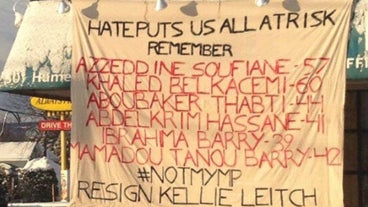 HATE PUTS US ALL AT RISK
REMEMBER
AZZEDDINE SOUFIANE - 57
KHALED BELKACEMI - 60
ABOUBAKER THABTI - 44
ABDELKRIM HASSANE - 41
IBRAHIMA BARRY - 39
MAMADOU TANOU BARRY - 42
#NOTMYMP
RESIGN KELLIE LEITCH
ALWAYS
DRIVE TH